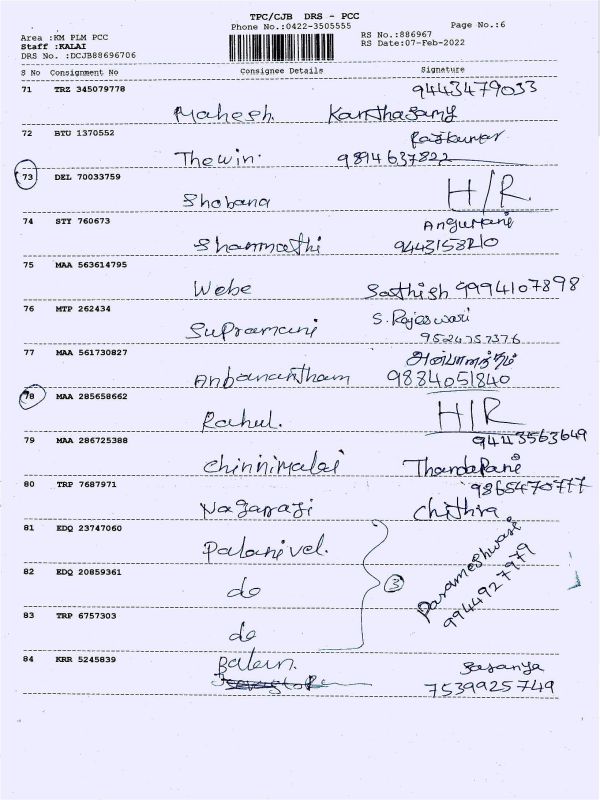 TPC/CJB DRS - PCC
Phone No.:0422-3505555
Page No.:6
Area :KM PLM PCC
Staff :KALAI
DRS No. :DCJB88696706
RS No.:886967
RS Date:07-Feb-2022
S No Consignment No Consignee Details Signature
71 TRZ 345079778 9443479033
Mahesh. Kanthasamy
72 BTU 1370552 Rajkumar
Thewin. 9894637822
73 DEL 70033759 H/R
Shobana
74 STY 760673
Shanmathi 9443158210
75 MAA 563614795
Webe Sathish 9994107898
76 MTP 262434 S. Rajeswari
Supramani 9524757376
77 MAA 561730827 அன்பானந்தம்
Anbanantham 9884051840
78 MAA 285658662 H/R
Rahul.
79 MAA 286725388 9443563649
Chinnimalai Thandapani
80 TRP 7687971 9865470777
Nagarraji Chithra
81 EDQ 23747060
Palanivel.
82 EDQ 20859361 3 Parameshwari
do 9944927979
83 TRP 6757303
do
84 KRR 5245839
Balan. Saranya
7539925749